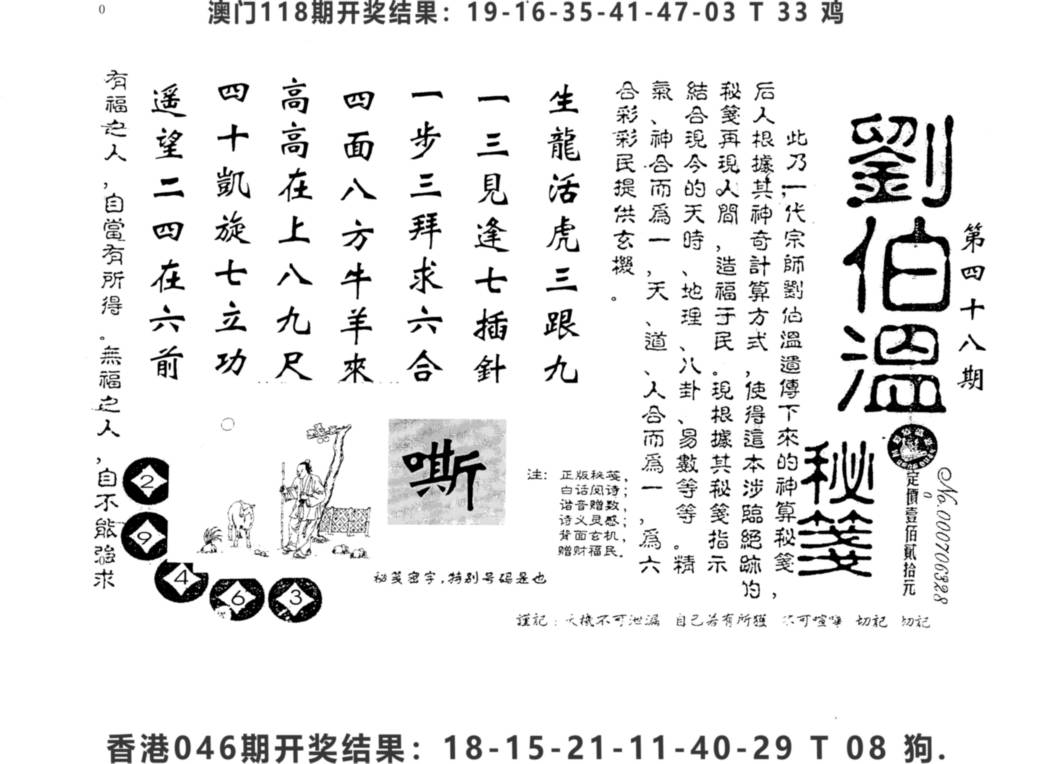 0
澳门118期开奖结果：19-16-35-41-47-03 T 33 鸡
劉伯溫
秘箋
第四十八期
定價壹佰貳拾元
No.000706328
此乃一代宗師劉伯溫遺傳下來的神算秘箋，
后人根據其神奇計算方式，使得這本涉臨絕跡的
秘箋再現人間，造福于民。現根據其秘箋指示
結合現今的天時、地理、八卦、易數等等。精
氣、神合而爲一，天、道、人合而爲一，爲六
合彩彩民提供玄機。
生龍活虎三跟九
一三見逢七插針
一步三拜求六合
四面八方牛羊來
高高在上八九尺
四十凱旋七立功
遥望二四在六前
有福之人，自當有所得。無福之人，自不能強求
2
9
4
6
3
嘶
注：正版秘笺，
白话闵诗；
谐音赠数，
诗义灵感；
背面玄机，
赠财福民。
秘笺密字，特别号码是也
謹記：天機不可泄漏 自己若有所獲 不可喧嘩 切記 切記
香港046期开奖结果：18-15-21-11-40-29 T 08 狗.